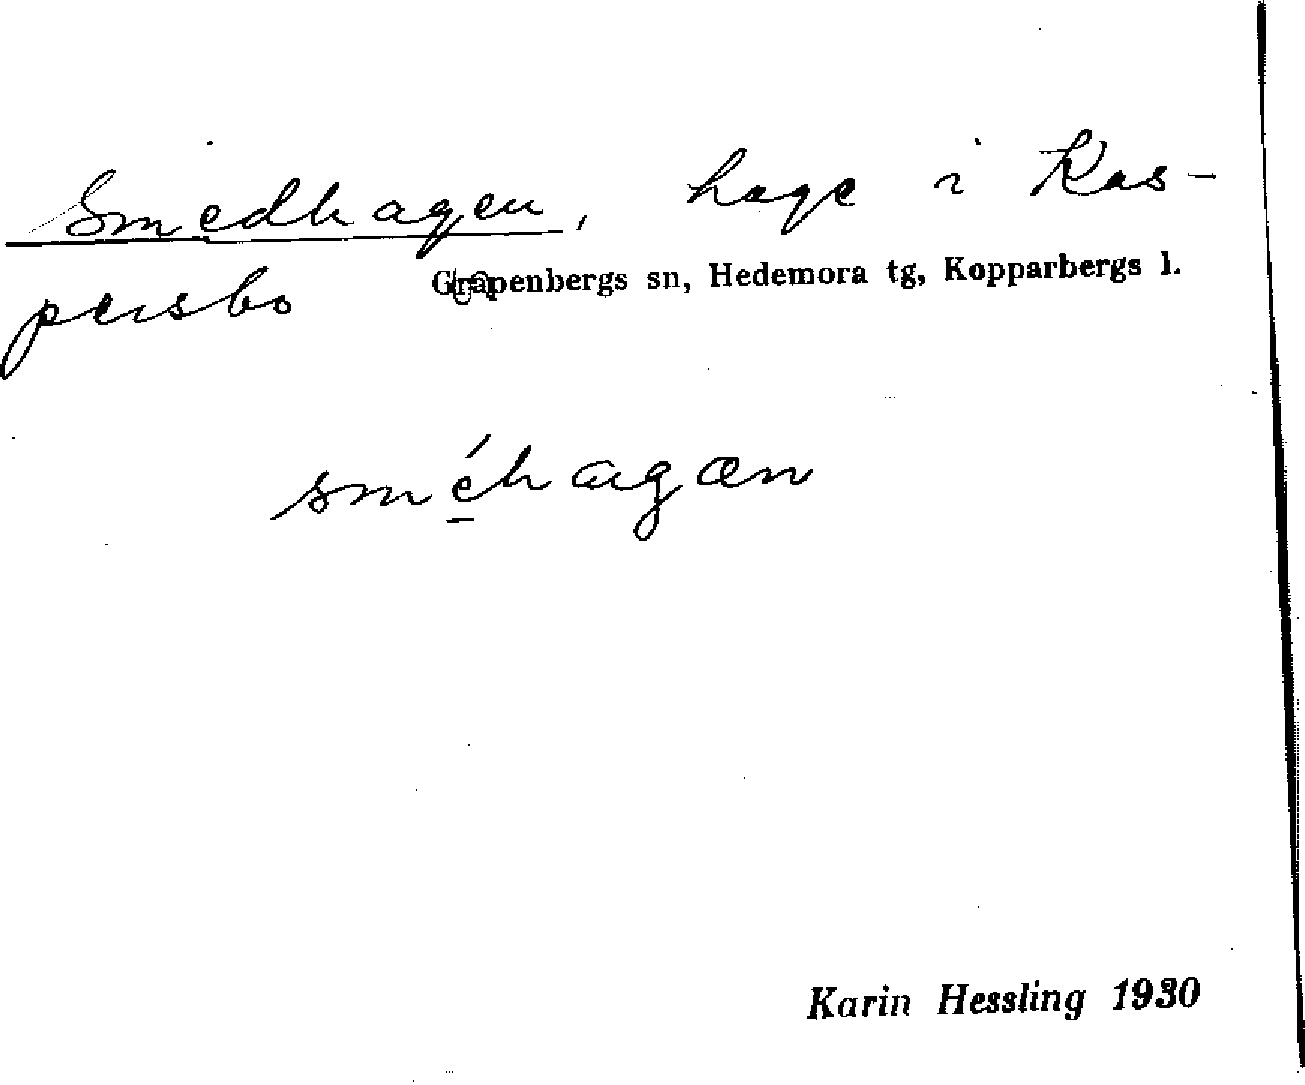 Smedhagen, hage i Kas-
persbo Garpenbergs sn, Hedemora tg, Kopparbergs l.
sméhagæn
Karin Hessling 1930